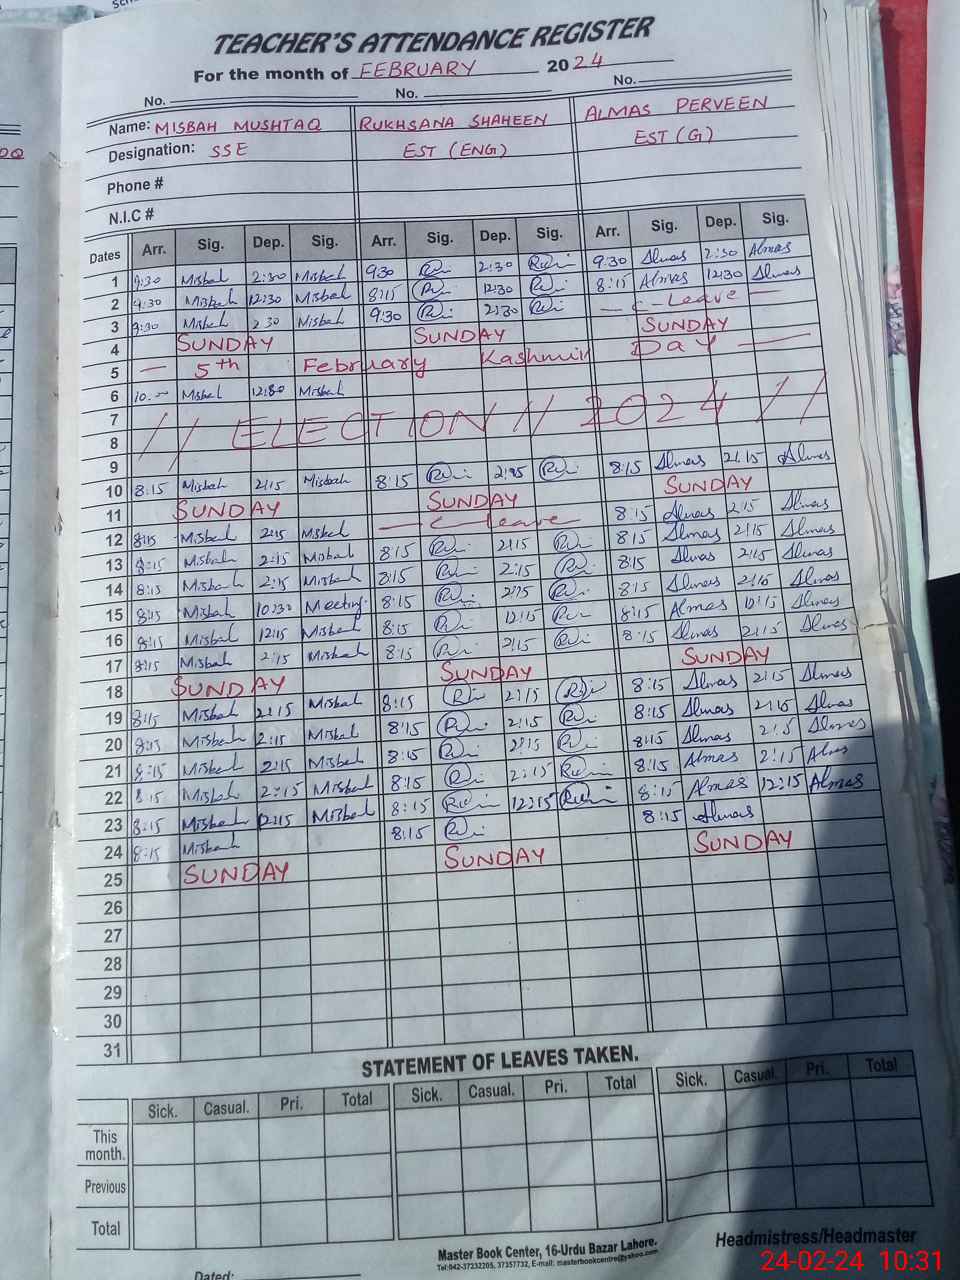 TEACHER'S ATTENDANCE REGISTER
For the month of FEBRUARY 2024
No. No. No.
Name: MISBAH MUSHTAQ RUKHSANA SHAHEEN ALMAS PERVEEN
Designation: SSE EST (ENG) EST (G)
Phone #
N.I.C #
Dates Arr. Sig. Dep. Sig. Arr. Sig. Dep. Sig. Arr. Sig. Dep. Sig.
1 9:30 Misbah 2:30 Misbah 9:30 2:30 9:30 Almas 2:30 Almas
2 9:30 Misbah 12:30 Misbah 8:15 12:30 8:15 Almas 12:30 Almas
3 9:30 Misbah 2 30 Misbah 9:30 2:30 — Leave —
4 SUNDAY SUNDAY SUNDAY
5 — 5th February Kashmir Day —
6 10.— Misbah 12:30 Misbah
7
8 // ELECTION // 2024 //
9
10 8:15 Misbah 2:15 Misbah 8:15 2:15 8:15 Almas 2:15 Almas
11 SUNDAY SUNDAY SUNDAY
12 8:15 Misbah 2:15 Misbah — Leave — 8:15 Almas 2:15 Almas
13 8:15 Misbah 2:15 Misbah 8:15 2:15 8:15 Almas 2:15 Almas
14 8:15 Misbah 2:15 Misbah 8:15 2:15 8:15 Almas 2:15 Almas
15 8:15 Misbah 10:30 Meeting 8:15 2:15 8:15 Almas 2:15 Almas
16 8:15 Misbah 12:15 Misbah 8:15 12:15 8:15 Almas 12:15 Almas
17 8:15 Misbah 2:15 Misbah 8:15 2:15 8:15 Almas 2:15 Almas
18 SUNDAY SUNDAY SUNDAY
19 8:15 Misbah 2:15 Misbah 8:15 2:15 8:15 Almas 2:15 Almas
20 8:15 Misbah 2:15 Misbah 8:15 2:15 8:15 Almas 2:15 Almas
21 8:15 Misbah 2:15 Misbah 8:15 2:15 8:15 Almas 2:15 Almas
22 8:15 Misbah 2:15 Misbah 8:15 2:15 8:15 Almas 2:15 Almas
23 8:15 Misbah 12:15 Misbah 8:15 12:15 8:15 Almas 12:15 Almas
24 8:15 Misbah 8:15 8:15 Almas
25 SUNDAY SUNDAY SUNDAY
26
27
28
29
30
31
STATEMENT OF LEAVES TAKEN.
Sick. Casual. Pri. Total Sick. Casual. Pri. Total Sick. Casual. Pri. Total
This month.
Previous
Total
Headmistress/Headmaster
Master Book Center, 16-Urdu Bazar Lahore.
Tel:042-37232205, 37357732, E-mail: masterbookcentre@yahoo.com
Dated:
24-02-24 10:31